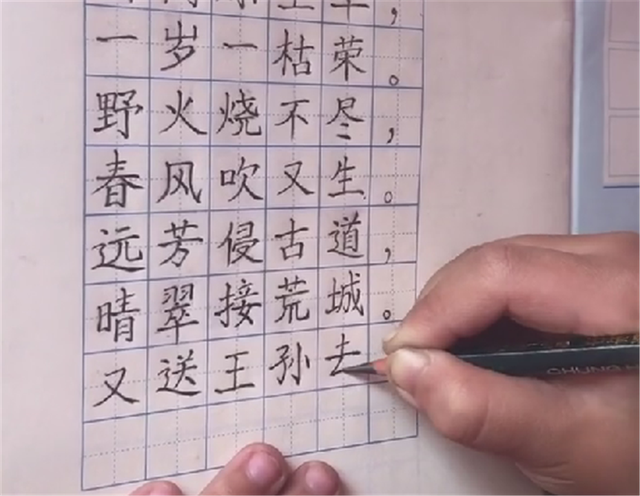 一岁一枯荣。
野火烧不尽，
春风吹又生。
远芳侵古道，
晴翠接荒城。
又送王孙去
CHUNG